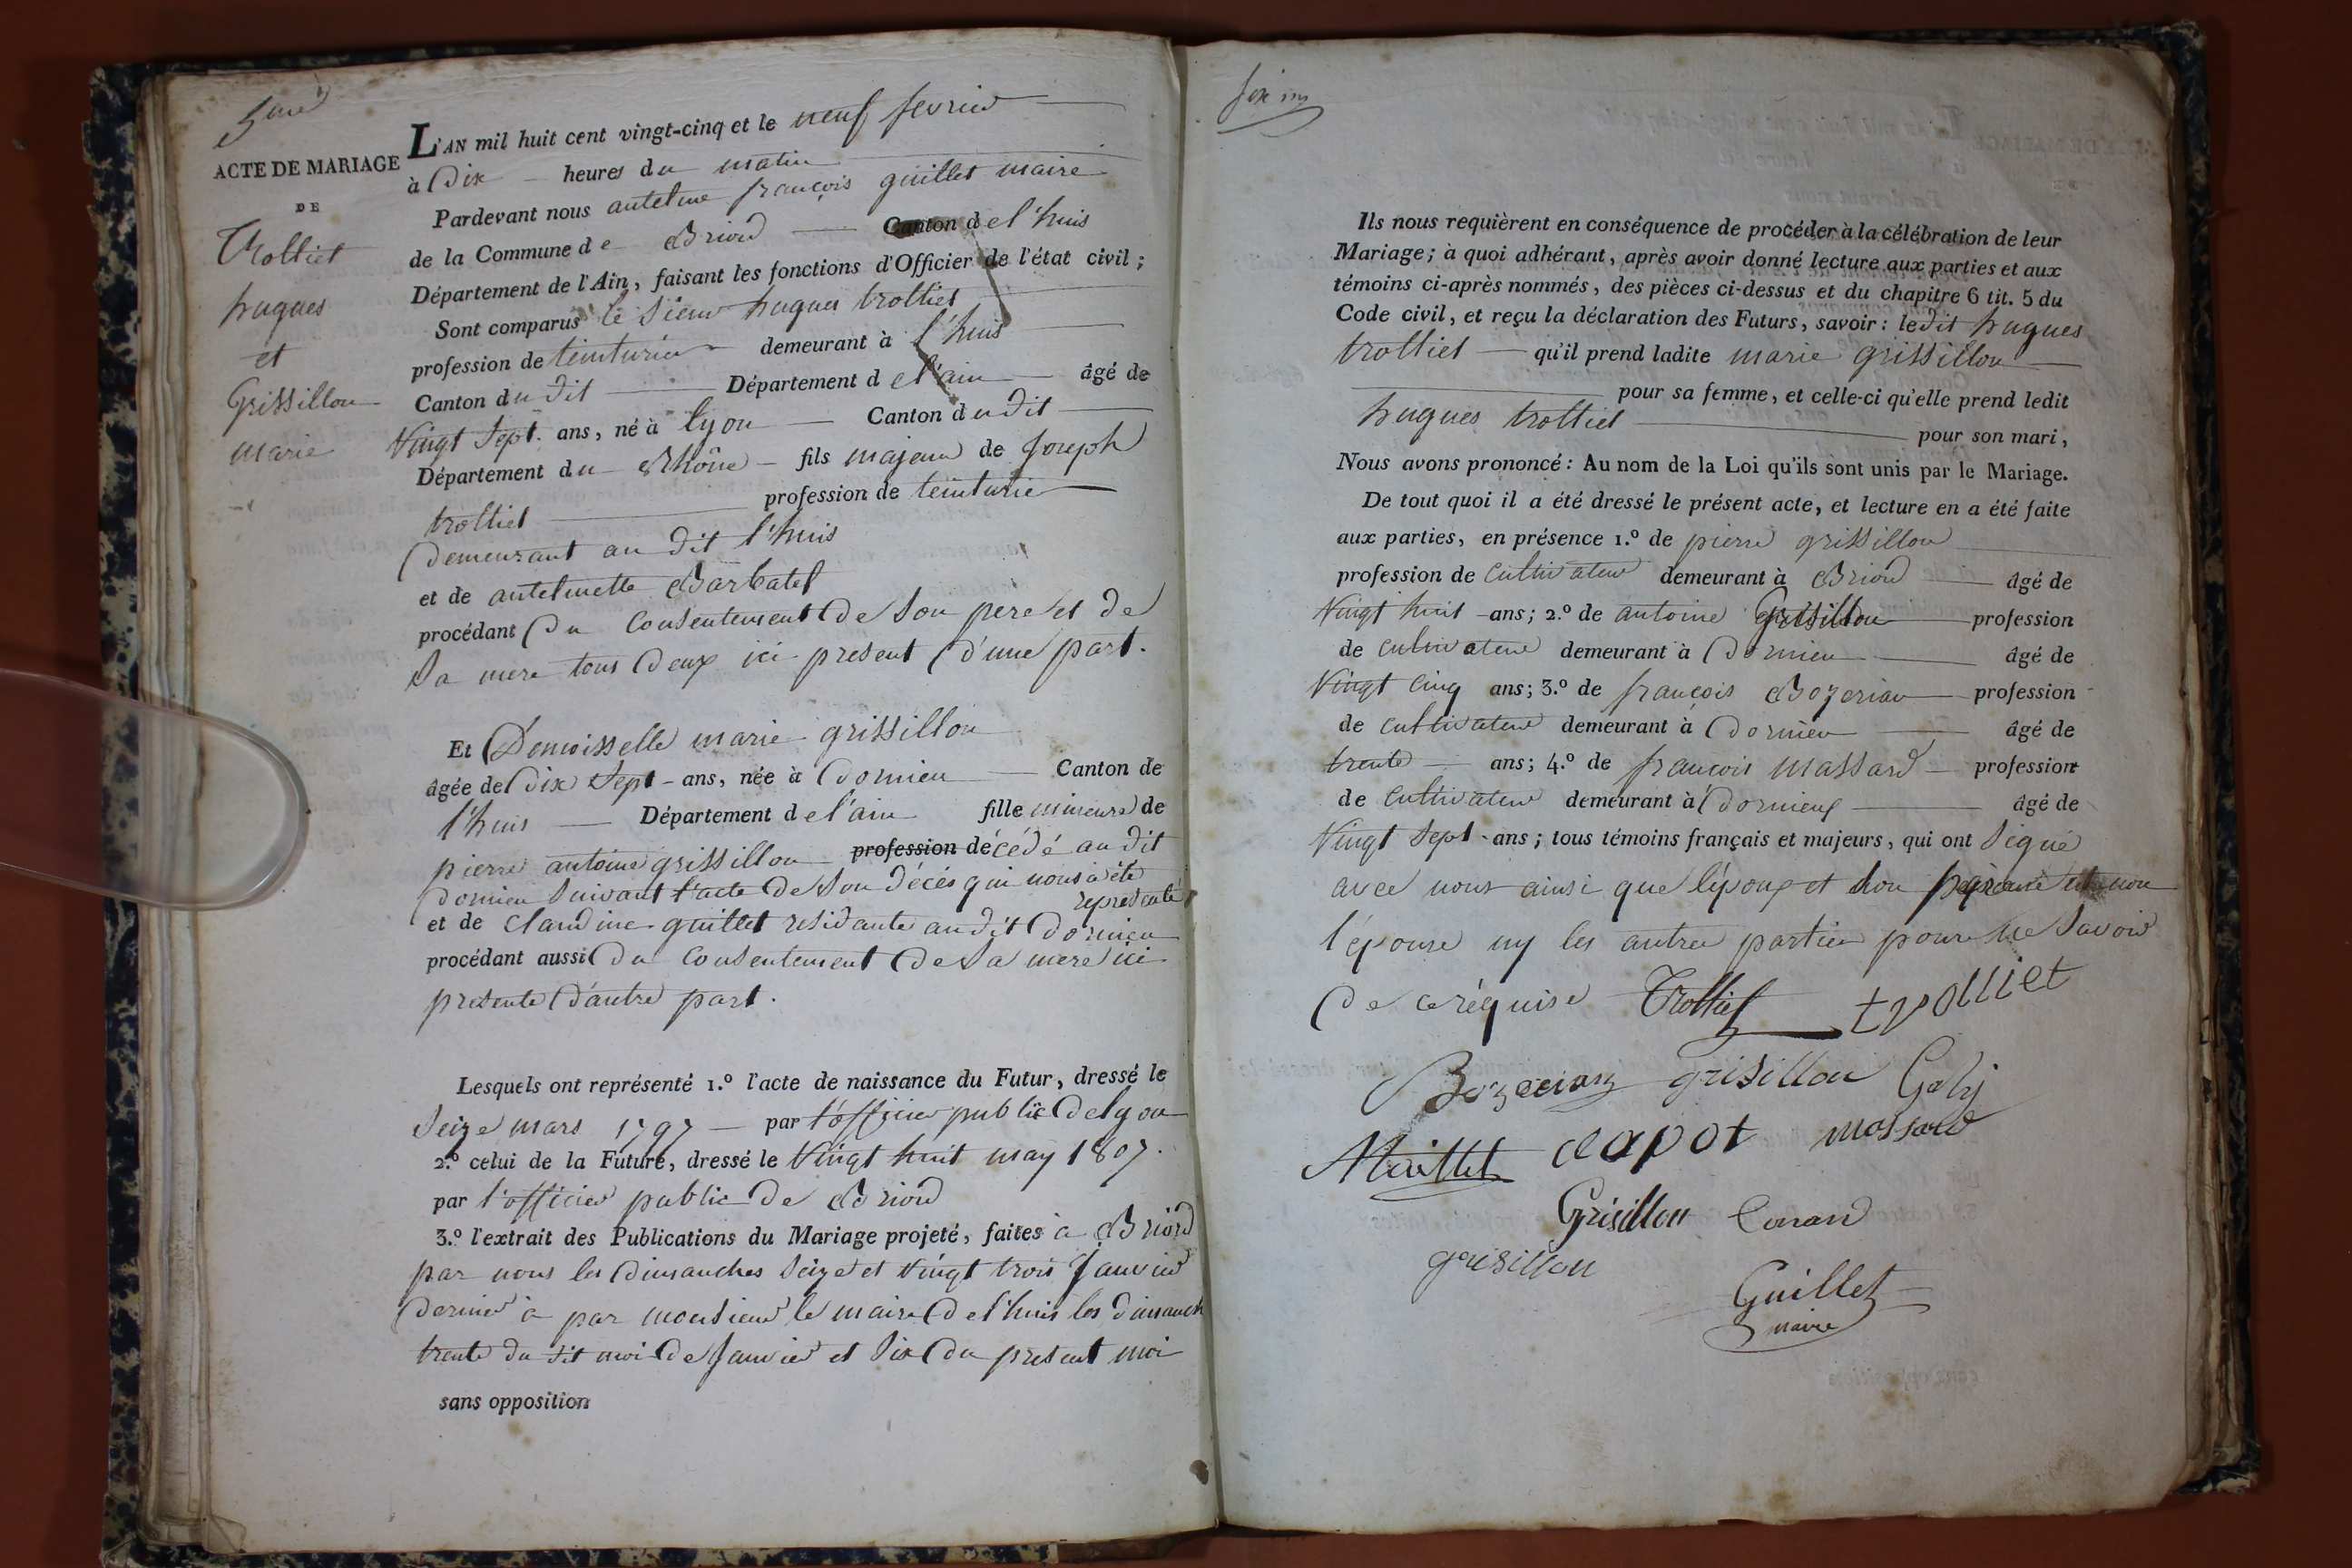 5me
ACTE DE MARIAGE
DE
Trolliet
hugues
et
Grissillon
marie
L'AN mil huit cent vingt-cinq et le neuf fevrier
à Dix heures du matin
Pardevant nous antelme françois guillet maire
de la Commune de Briord Canton de l'huis
Département de l'Ain, faisant les fonctions d'Officier de l'état civil ;
Sont comparus le sieur hugues trolliet
profession de teinturier demeurant à l'huis
Canton du dit Département de l'ain âgé de
Vingt Sept ans, né à lyon Canton du dit
Département du Rhône fils majeur de Joseph
trolliet profession de teinturie
Demeurant au dit l'huis
et de antelmette Barbatel
procédant Du Consentement De Son pere et De
Sa mere tous Deux ici present D'une part.
Et Demoisselle marie grissillon
âgée de Dix Sept ans, née à Dornieu Canton de
l'huis Département de l'ain fille mineure de
pierre antoine grissillon profession décédé au dit
Dornieu Suivant l'acte De Son Décès qui nous a été
representé
et de Claudine guillet residante au dit Dornieu
procédant aussi Du Consentement De Sa mere ici
presente D'autre part.
Lesquels ont représenté 1.º l'acte de naissance du Futur, dressé le
Seize mars 1797 par l'officier public De lyon
2.º celui de la Future, dressé le Vingt huit may 1807.
par l'officier public De Briord
3.º l'extrait des Publications du Mariage projeté, faites à Briord
par nous les Dimanches Seize et Vingt trois Janvier
Dernier à par monsieur le maire De l'huis les Dimanch
trente du dit moi De Janvier et Six Du present moi
sans opposition
Ils nous requièrent en conséquence de procéder à la célébration de leur
Mariage ; à quoi adhérant, après avoir donné lecture aux parties et aux
témoins ci-après nommés, des pièces ci-dessus et du chapitre 6 tit. 5 du
Code civil, et reçu la déclaration des Futurs, savoir : ledit hugues
trolliet qu'il prend ladite marie grissillon
pour sa femme, et celle-ci qu'elle prend ledit
hugues trolliet pour son mari,
Nous avons prononcé : Au nom de la Loi qu'ils sont unis par le Mariage.
De tout quoi il a été dressé le présent acte, et lecture en a été faite
aux parties, en présence 1.º de pierre grissillon
profession de Cultivateur demeurant à Briord âgé de
Vingt huit ans ; 2.º de antoine Grissillon profession
de cultivateur demeurant à Dornieu âgé de
Vingt Cinq ans ; 3.º de françois Bozerian profession
de cultivateur demeurant à Dornieu âgé de
trente ans ; 4.º de françois massard profession
de Cultivateur demeurant à Dornieux âgé de
Vingt Sept ans ; tous témoins français et majeurs, qui ont Signé
avec nous ainsi que l'époux et Son et non
l'épouse ny les autres parties pour ne Savoir
De ce réquise Trolliet trolliet
Bozerian grisillon Goly
Maillet Capot massard
Grisillon Conand
grisillon
Guillet
maire